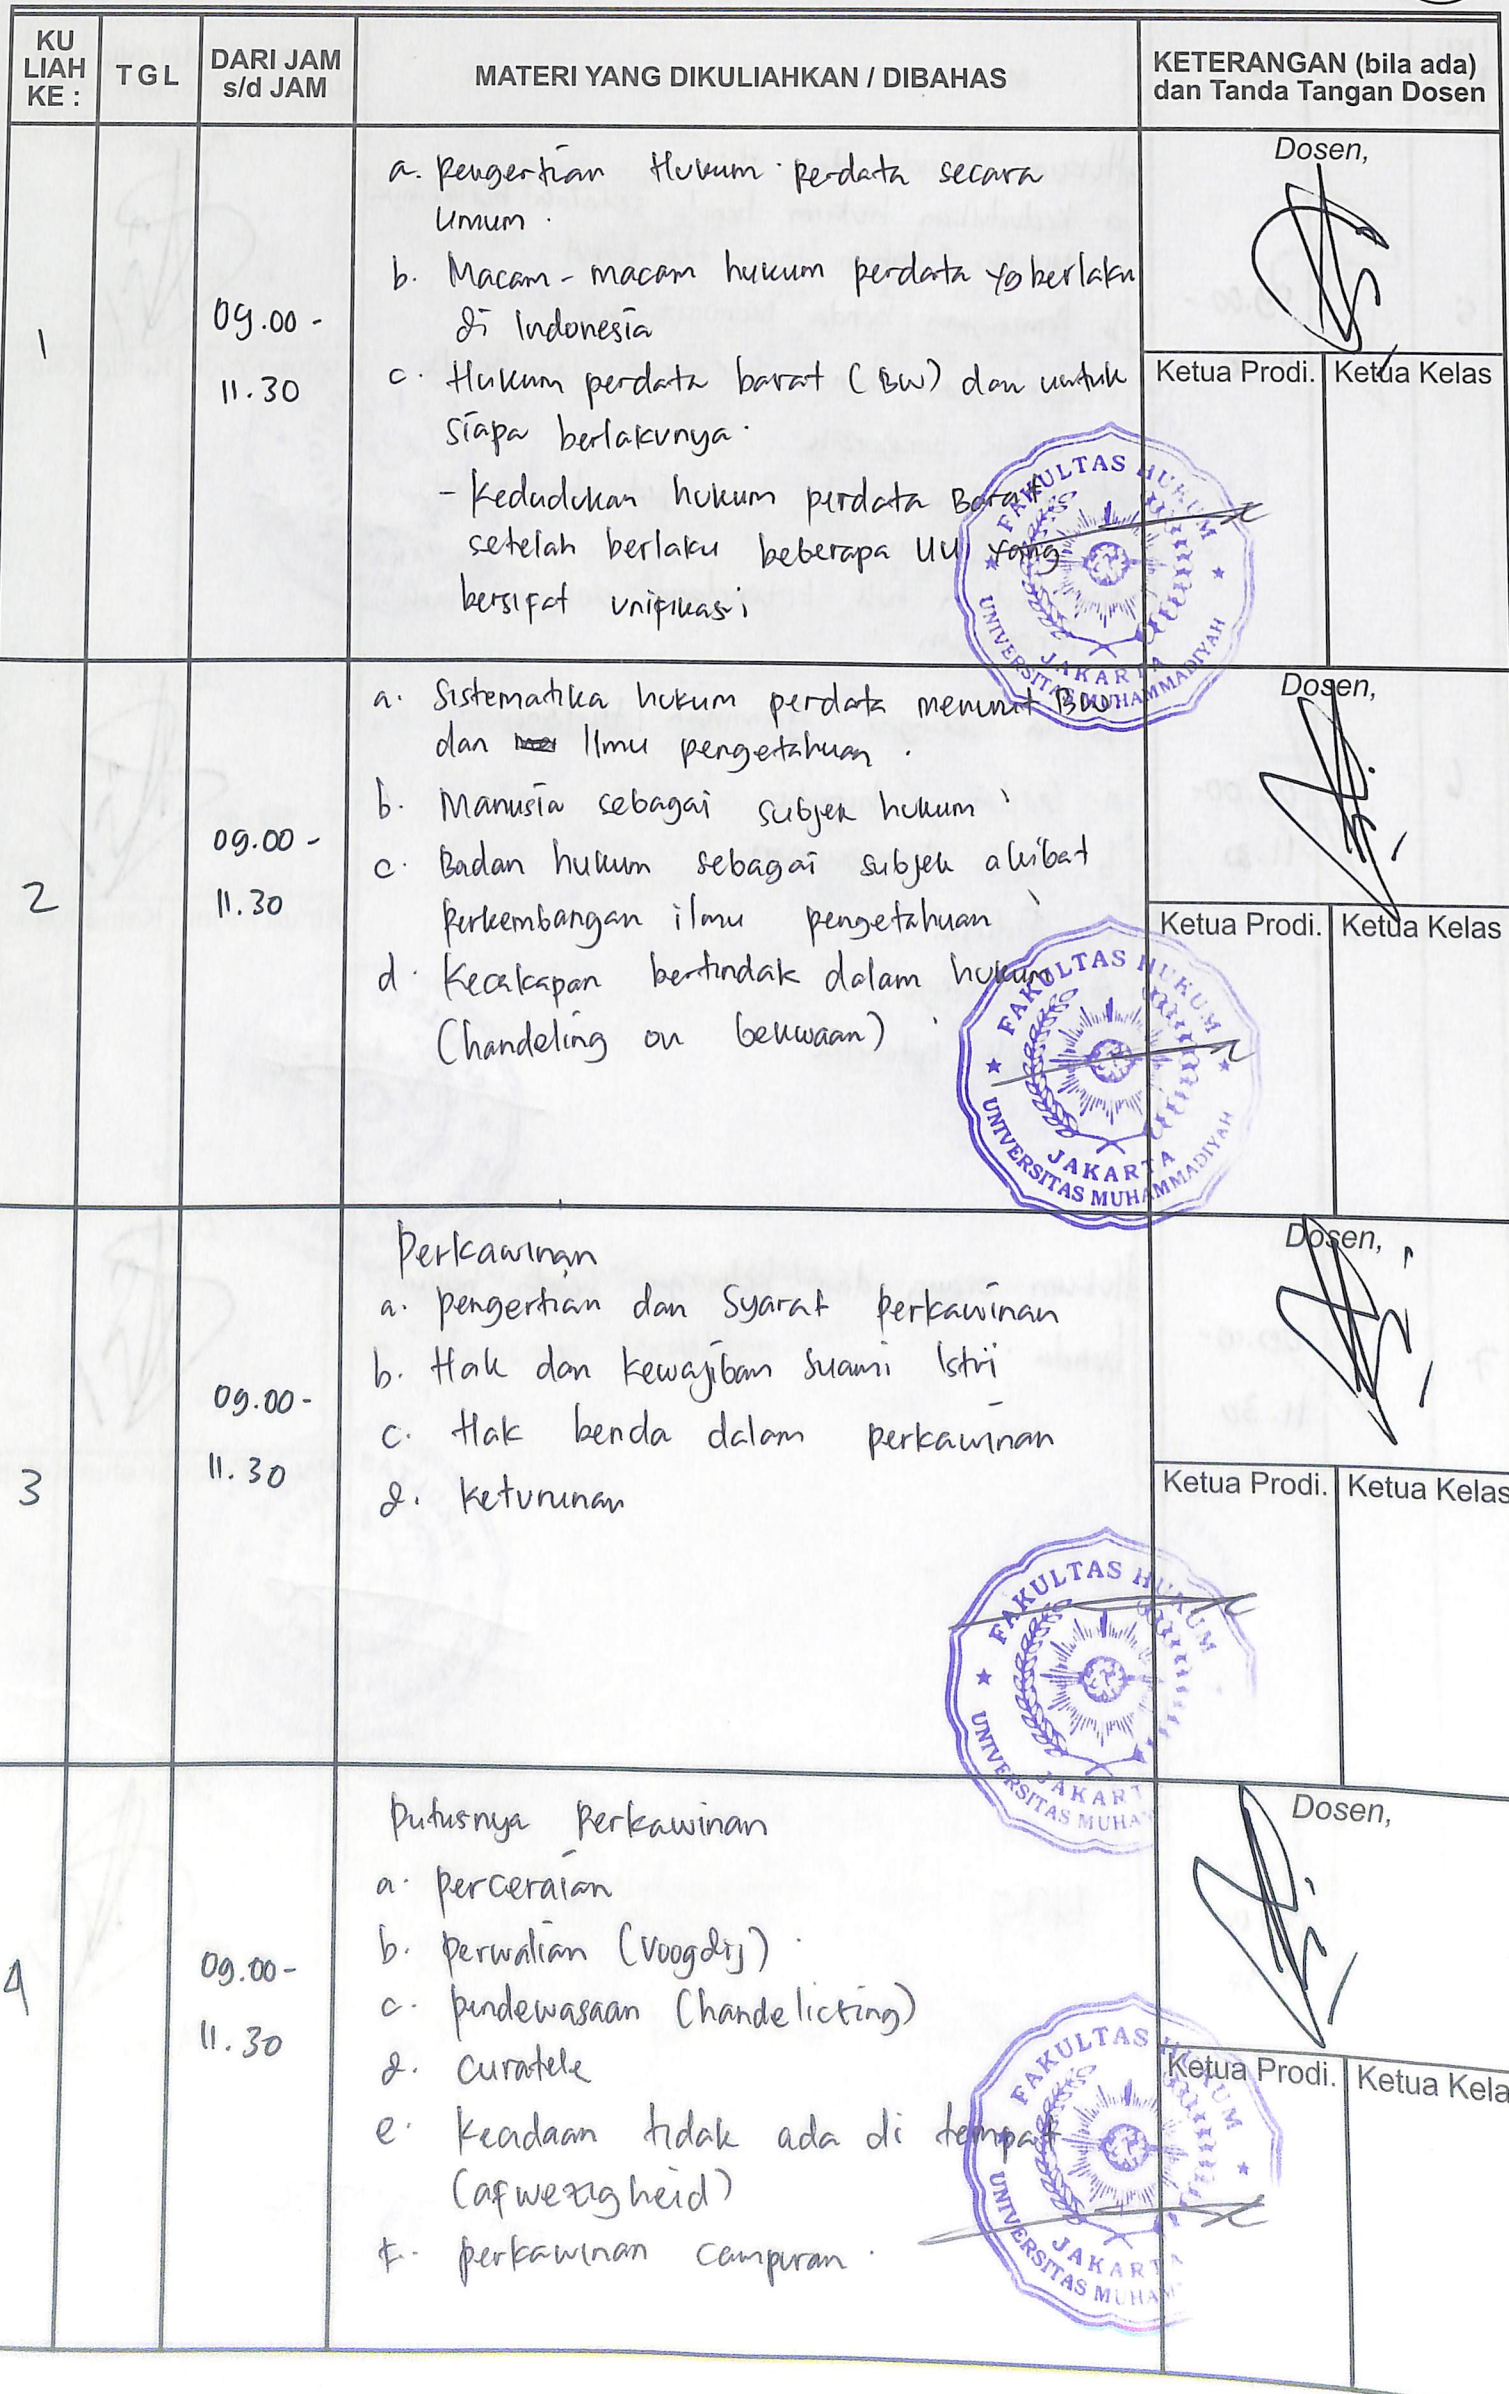 KU
LIAH
KE :
TGL
DARI JAM
s/d JAM
MATERI YANG DIKULIAHKAN / DIBAHAS
KETERANGAN (bila ada)
dan Tanda Tangan Dosen
1
09.00 -
11.30
a. Pengertian Hukum perdata secara
Umum.
b. Macam - macam hukum perdata yg berlaku
di Indonesia
c. Hukum perdata barat (BW) dan untuk
siapa berlakunya.
- Kedudukan hukum perdata Barat
setelah berlaku beberapa UU yang
bersifat unifikasi
Dosen,
Ketua Prodi.
Ketua Kelas
FAKULTAS HUKUM
JAKARTA
UNIVERSITAS MUHAMMADIYAH
2
09.00 -
11.30
a. Sistematika hukum perdata menurut BW
dan Ilmu pengetahuan.
b. Manusia sebagai subjek hukum
c. Badan hukum sebagai subjek akibat
perkembangan ilmu pengetahuan
d. Kecakapan bertindak dalam hukum
(handeling on bekwaan)
Dosen,
Ketua Prodi.
Ketua Kelas
FAKULTAS HUKUM
JAKARTA
UNIVERSITAS MUHAMMADIYAH
3
09.00 -
11.30
Perkawinan
a. pengertian dan Syarat perkawinan
b. Hak dan kewajiban Suami Istri
c. Hak benda dalam perkawinan
d. Keturunan
Dosen,
Ketua Prodi.
Ketua Kelas
FAKULTAS HUKUM
JAKART
UNIVERSITAS MUHA
4
09.00 -
11.30
Putusnya Perkawinan
a. perceraian
b. perwalian (Voogdij)
c. pendewasaan (handelicting)
d. curatele
e. Keadaan tidak ada di tempat
(afwezigheid)
f. perkawinan campuran.
Dosen,
Ketua Prodi.
Ketua Kela
FAKULTAS HUKUM
JAKARTA
UNIVERSITAS MUHAM